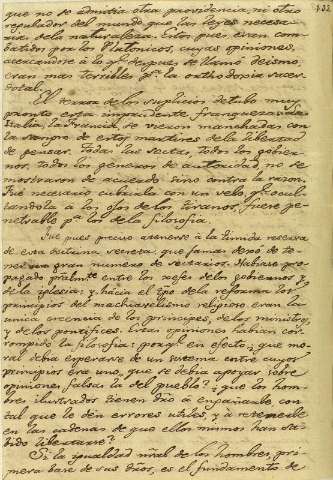 132
que no se admitia otra providencia, ni otro
regulador del mundo que las leyes necesa
rias de la naturaleza. Estos pues eran com
batidos por los Platonicos, cuyas opiniones,
acercandose á lo qe. despues se llamó deismo,
eran mas terribles pa. la orthodoxia sacer
dotal.
El terror de los suplicios detubo muy
pronto esta imprudente franqueza: la
Italia, la Francia, se vieron manchadas con
la sangre de estos martires de la libertad
de pensar. Todas las sectas, todos los gobier
nos, todos los generos de autoridad, no se
mostraron de acuerdo sino contra la razon.
Fué necesario cubrirla con un velo, qe. ocul
tandola á los ojos de los tiranos, fuese pe
netrable pa. los de la filosofia.
Fué pues preciso atenerse á la timida reserva
de esta doctrina secreta, que jamas dejó de te
ner un gran numero de sectarios. Habiase pro
pagado pralmte. entre los xefes de los gobiernos y
de la iglesia; y hácia el tpo. de la reforma los
principios del machiavelismo religioso eran la
unica creencia de los principes, de los ministros
y de los pontifices. Estas opiniones habian cor
rompido la filosofia: porqe. en efecto ¿que mo
ral debia esperarse de un sistema entre cuyos
principios era uno, que se debia apoyar sobre
opiniones falsas la del pueblo? ¿que los hom
bres ilustrados tienen dro. á engañarle con
tal que le dén errores utiles, y á retenerle
en las cadenas de que ellos mismos han sa
bido libertarse?
Si la igualdad nral. de los hombres, pri
mera base de sus dros, es el fundamento de